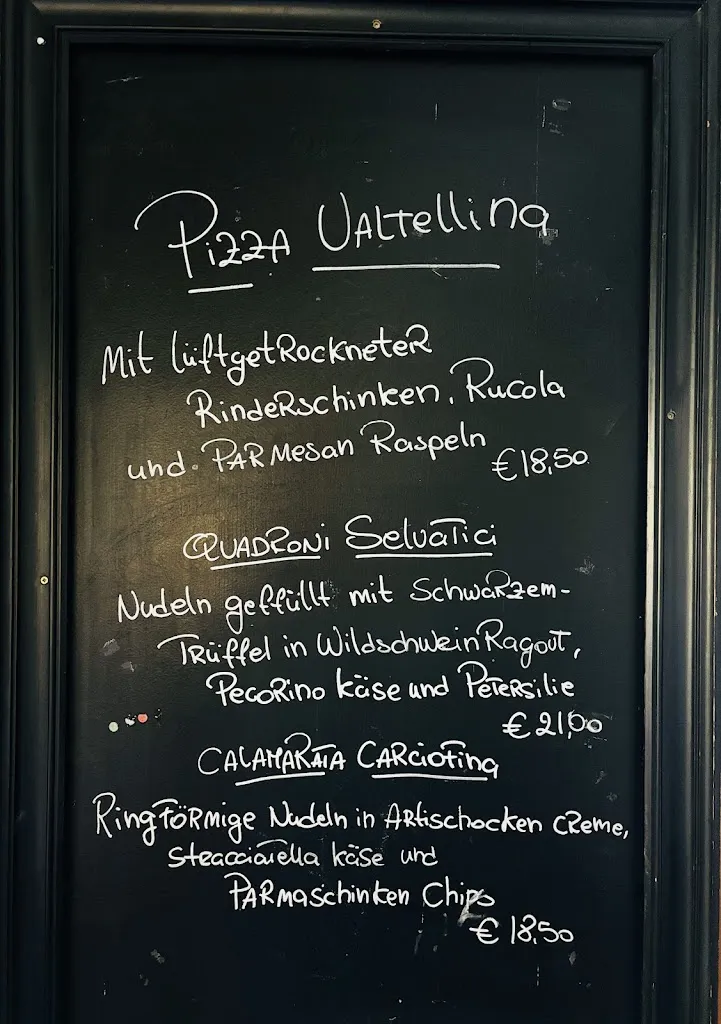 Pizza Valtellina
Mit lüftgetrockneter
Rinderschinken, Rucola
und Parmesan Raspeln
€18,50
Quadroni Selvatici
Nudeln gefüllt mit Schwarzem-
Trüffel in Wildschwein Ragout,
Pecorino käse und Petersilie
€21,00
Calamarata Carciofina
Ringförmige Nudeln in Artischocken Creme,
Stracciatella käse und
Parmaschinken Chips
€18,50